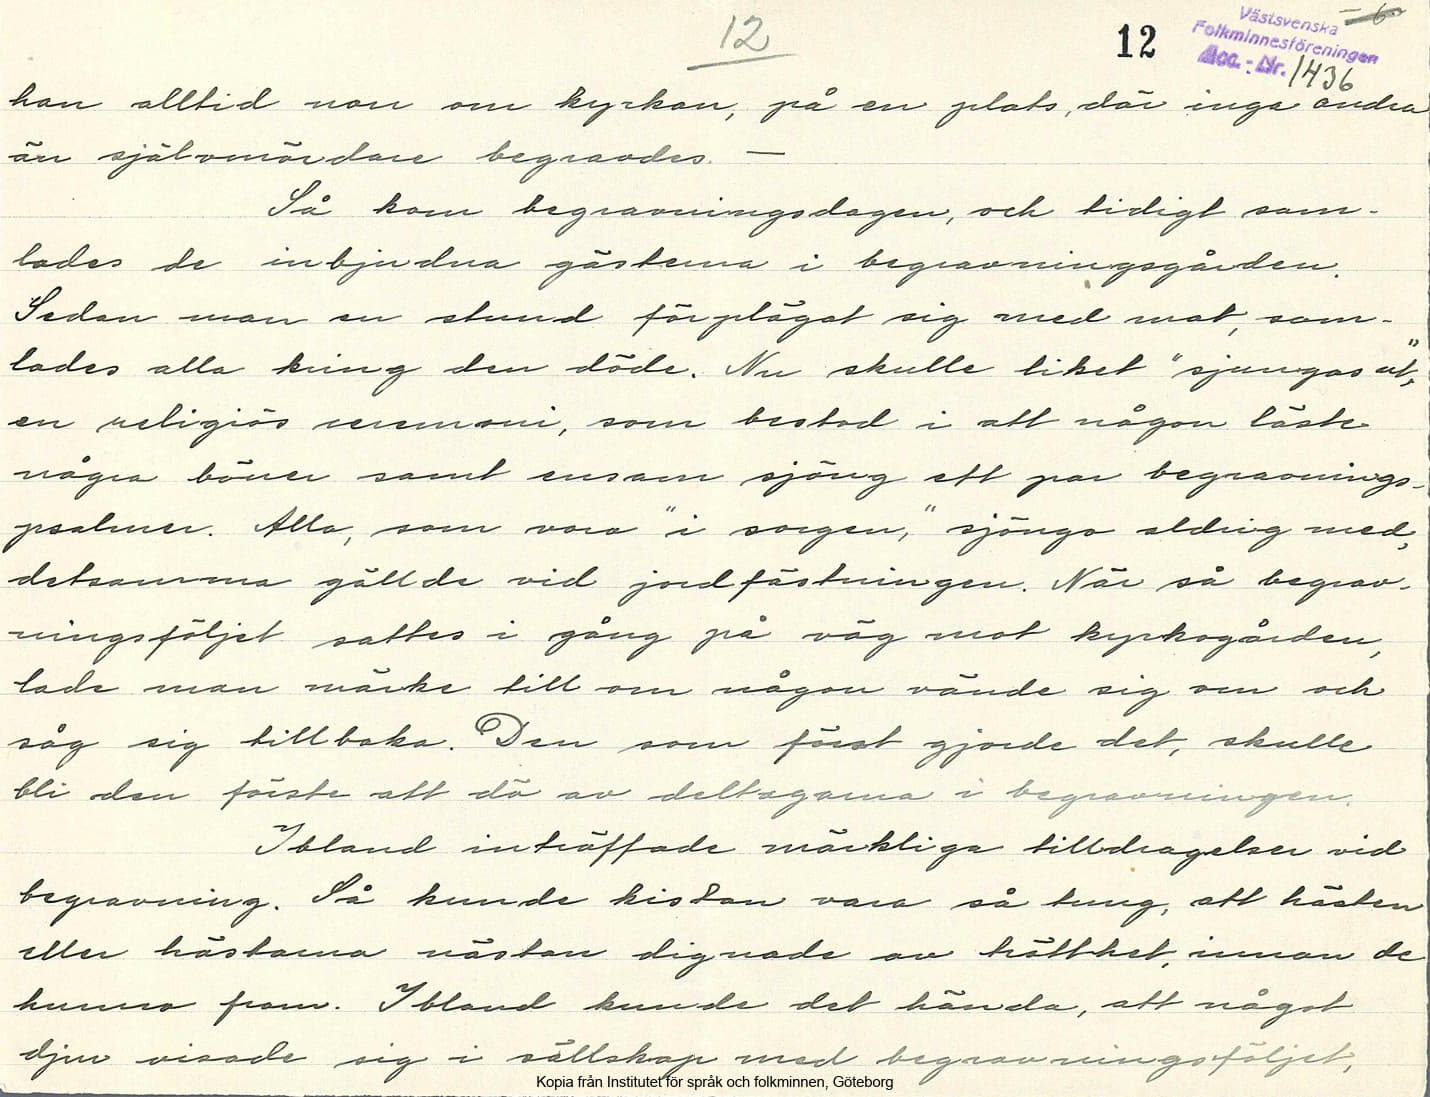 12
12
Västsvenska
Folkminnesföreningen
Acc. - Nr. 1436
han alltid norr om kyrkan, på en plats, där inga andra
än självmördare begravdes. —
Så kom begravningsdagen, och tidigt sam-
lades de inbjudna gästerna i begravningsgården.
Sedan man en stund förplägat sig med mat, sam-
lades alla kring den döde. Nu skulle liket "sjungas ut",
en religiös ceremoni, som bestod i att någon läste
några böner samt ensam sjöng ett par begravnings-
psalmer. Alla, som voro "i sorgen," sjöngo aldrig med,
detsamma gällde vid jordfästningen. När så begrav-
ningsföljet sattes i gång på väg mot kyrkogården,
lade man märke till om någon vände sig om och
såg sig tillbaka. Den som först gjorde det, skulle
bli den förste att dö av deltagarna i begravningen.
Ibland inträffade märkliga tilldragelser vid
begravning. Så kunde kistan vara så tung, att hästen
eller hästarna nästan dignade av trötthet, innan de
hunno fram. Ibland kunde det hända, att något
djur visade sig i sällskap med begravningsföljet,
Kopia från Institutet för språk och folkminnen, Göteborg